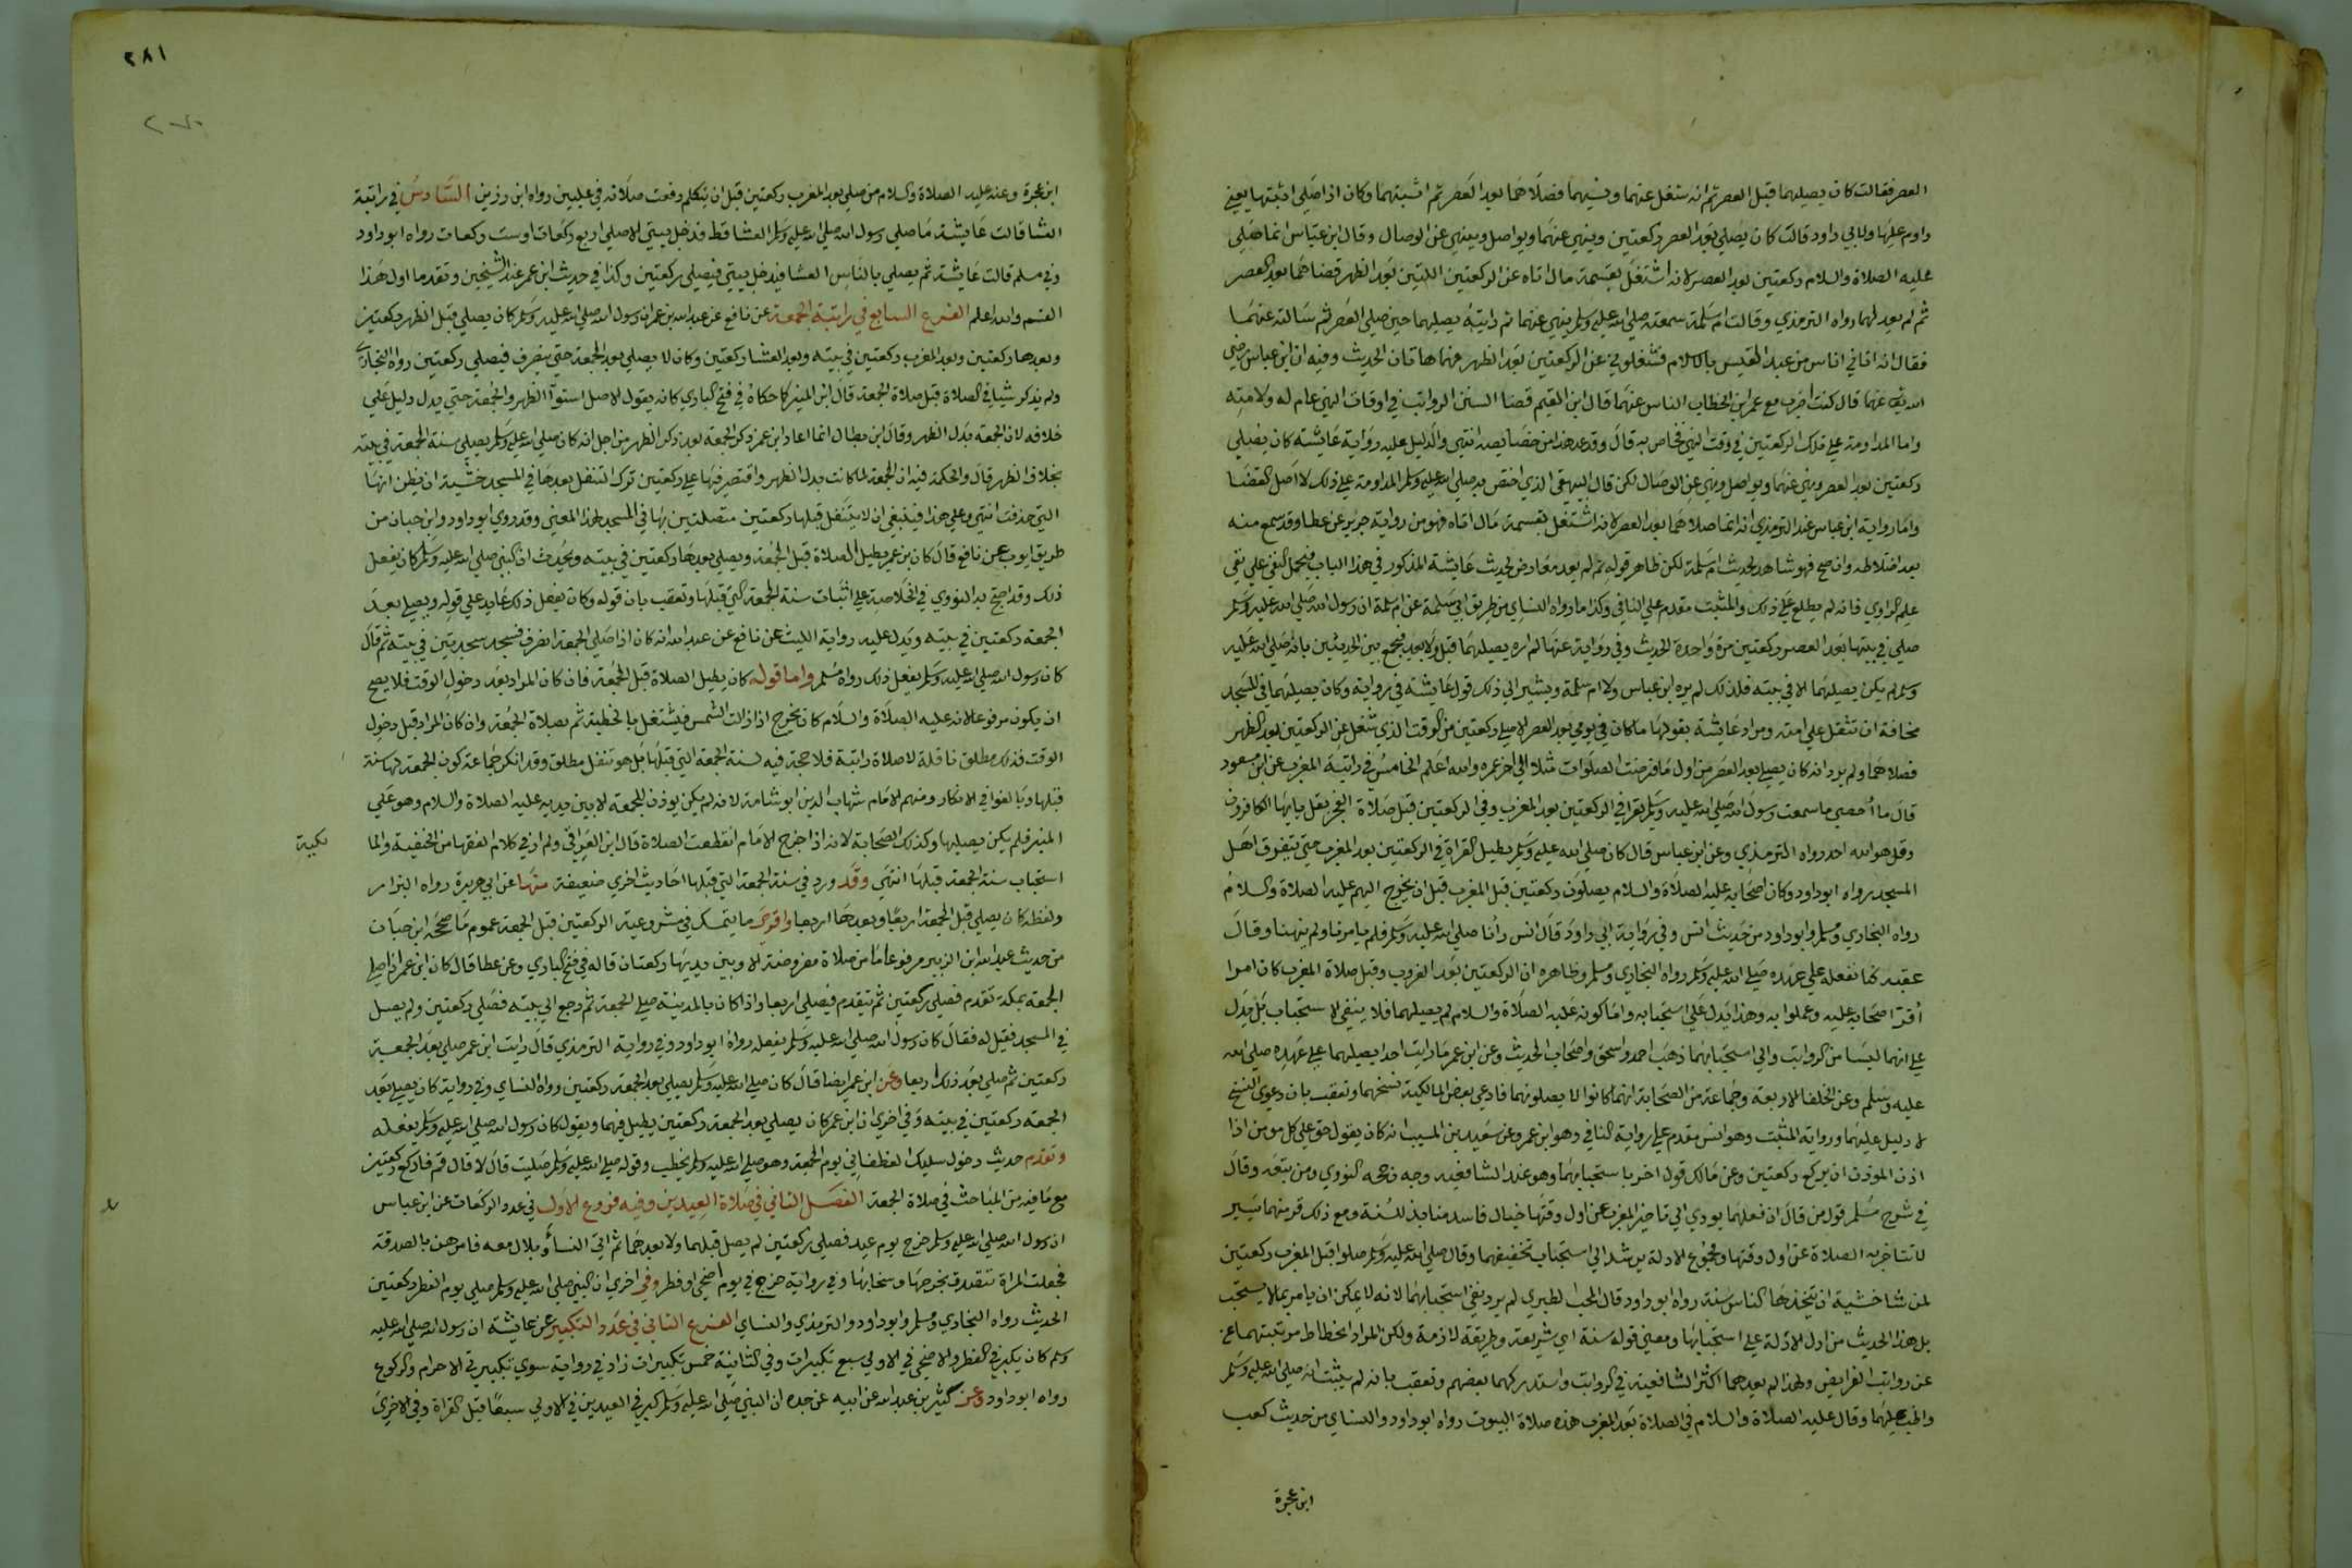 العصر فقالت كان يصليهما قبل العصر ثم انه شغل عنهما او نسيهما فصلاهما بعد العصر ثم اثبتهما وكان اذا صلى صلاة اثبتها يعني
داوم عليها ولابي داود قالت كان يصلي بعد العصر ركعتين وينهي عنهما ويواصل وينهي عن الوصال وقال ابن عباس انما صلى
عليه الصلاة والسلام ركعتين بعد العصر لانه اشتغل بقسمة مال اتاه عن الركعتين اللتين بعد الظهر فصلاهما بعد العصر
ثم لم يعد لهما رواه الترمذي وقالت ام سلمة سمعته صلى الله عليه وسلم ينهي عنهما ثم رايته يصليهما حين صلى العصر ثم سالته عنهما
فقال انه اتاني اناس من عبد القيس بالاسلام فشغلوني عن الركعتين بعد الظهر فهما هاتان الحديث وفيه ان ابن عباس رضي
الله عنهما قال كنت اضرب مع عمر ابن الخطاب الناس عنهما قال ابن القيم قضا السنن الرواتب في اوقات النهي عام له ولامته
واما المداومة على تلك الركعتين في وقت النهي فخاص به قال وقد عد هذا من خصايصه انتهى والدليل عليه رواية عايشة كان يصلي
ركعتين بعد العصر وينهي عنهما ويواصل وينهي عن الوصال لكن قال البيهقي الذي اختص به صلى الله عليه وسلم المداومة على ذلك لا اصل القضا
واما رواية ابن عباس عند الترمذي انه انما صلاهما بعد العصر لانه اشتغل بقسمة مال اتاه فهو من رواية جرير عن عطا وقد سمع منه
بعد اختلاطه وان صح فهو شاهد لحديث ام سلمة لكن ظاهر قوله ثم لم يعد معارض لحديث عايشة المذكور في هذا الباب فيحمل النفي على نفي
علم الراوي فانه لم يطلع على ذلك والمثبت مقدم على النافي وكذا ما رواه النساي من طريق ابي سلمة عن ام سلمة ان رسول الله صلى الله عليه وسلم
صلى في بيتها بعد العصر ركعتين مرة واحدة الحديث وفي رواية عنها لم اره يصليهما قبل ولا بعد فيجمع بين الحديثين بانه صلى الله عليه
وسلم لم يكن يصليهما الا في بيته فلذلك لم يره ابن عباس ولا ام سلمة ويشير الى ذلك قول عايشة في رواية وكان لا يصليهما في المسجد
مخافة ان تثقل على امته ومراد عايشة بقولها ما كان في يومي بعد العصر الا صلى ركعتين من الوقت الذي شغل عن الركعتين بعد الظهر
فصلاهما ولم يرد انه كان يصلي بعد العصر من اول ما فرضت الصلوات مثلا الى اخر عمره والله اعلم الخامس في راتبة المغرب عن ابن مسعود
قال ما احصي ما سمعت رسول الله صلى الله عليه وسلم يقرا في الركعتين بعد المغرب وفي الركعتين قبل صلاة الفجر بقل يا ايها الكافرون
وقل هو الله احد رواه الترمذي وعن ابن عباس قال كان صلى الله عليه وسلم يطيل القراة في الركعتين بعد المغرب حتى يتفرق اهل
المسجد رواه ابو داود وكان اصحابه عليه الصلاة والسلام يصلون ركعتين قبل المغرب قبل ان يخرج اليهم عليه الصلاة والسلام
رواه البخاري ومسلم وابو داود من حديث انس وفي رواية ابي داود قال انس رانا صلى الله عليه وسلم فلم يامرنا ولم ينهنا وقال
عقبة كنا نفعله على عهده صلى الله عليه وسلم رواه البخاري ومسلم وظاهره ان الركعتين بعد الغروب وقبل صلاة المغرب كان امرا
اقر اصحابه عليه وعملوا به وهذا يدل على استحبابه واما كونه عليه الصلاة والسلام لم يصليهما فلا ينفي الاستحباب بل يدل
على انهما ليسا من الرواتب والى استحبابهما ذهب احمد واسحق واصحاب الحديث وعن ابن عمر ما رايت احدا يصليهما على عهده صلى الله
عليه وسلم وعن الخلفا الاربعة وجماعة من الصحابة انهما كانوا لا يصلونهما فادعى بعض المالكية نسخهما وتعقب بان دعوى النسخ
لا دليل عليها ورواية المثبت وهو انس مقدم على رواية النافي وهو ابن عمر وعن سعيد بن المسيب انه كان يقول حق على كل مومن اذا
اذن الموذن ان يركع ركعتين وعن مالك قول اخر باستحبابهما وهو عند الشافعية وجه رجحه النووي ومن تبعه وقال
في شرح مسلم قول من قال ان فعلهما يودي الى تاخير المغرب عن اول وقتها خيال فاسد منابذ للسنة ومع ذلك فزمنهما يسير
لا تتاخر به الصلاة عن اول وقتها ومجموع الادلة يرشد الى استحباب تخفيفهما وقال صلى الله عليه وسلم صلوا قبل المغرب ركعتين
لمن شا خشية ان يتخذها الناس سنة رواه ابو داود قال المحب الطبري لم يرد نفي استحبابها لانه لا يمكن ان يامر بما لا يستحب
بل هذا الحديث من ادل الادلة على استحبابها ومعنى قوله سنة اي شريعة وطريقة لازمة ولكن المراد انحطاط مرتبتهما عن
عن رواتب الفرايض ولهذا لم يعدهما اكثر الشافعية في الرواتب واستدركهما بعضهم وتعقب بانه لم يثبت انه صلى الله عليه وسلم
واظب عليهما وقال عليه الصلاة والسلام في الصلاة بعد المغرب هذه صلاة البيوت رواه ابو داود والنساي من حديث كعب
ابن عجرة
٢٨١
ابن عجرة وعنه عليه الصلاة والسلام من صلى بعد المغرب ركعتين قبل ان يتكلم رفعت صلاته في عليين رواه ابن رزين السادس في راتبة
العشا قالت عايشة ما صلى رسول الله صلى الله عليه وسلم العشا قط فدخل بيتي الا صلى اربع ركعات او ست ركعات رواه ابو داود
وفي مسلم قالت عايشة ثم يصلي بالناس العشا فيدخل بيتي فيصلي ركعتين وكذا في حديث ابن عمر عند الشيخين وتقدما اول هذا
القسم والله اعلم الفرع السابع في راتبة الجمعة عن نافع عن عبد الله بن عمر ان رسول الله صلى الله عليه وسلم كان يصلي قبل الظهر ركعتين
وبعدها ركعتين وبعد المغرب ركعتين في بيته وبعد العشا ركعتين وكان لا يصلي بعد الجمعة حتى ينصرف فيصلي ركعتين رواه البخاري
ولم يذكر شيا في الصلاة قبل صلاة الجمعة قال ابن المنير كما حكاه في فتح الباري كانه يقول الاصل استوا الظهر والجمعة حتى يدل دليل على
خلافه لان الجمعة بدل الظهر وقال ابن بطال انما اعاد ابن عمر ذكر الجمعة بعد ذكر الظهر من اجل انه كان صلى الله عليه وسلم يصلي سنة الجمعة في بيته
بخلاف الظهر قال والحكمة فيه ان الجمعة لما كانت بدل الظهر واقتصر فيها على ركعتين ترك التنفل بعدها في المسجد خشية ان يظن انها
التي حذفت انتهى وعلى هذا فينبغي ان لا يتنفل قبلها ركعتين متصلتين بها في المسجد لهذا المعنى وقد روى ابو داود وابن حبان من
طريق ايوب عن نافع قال كان بن عمر يطيل الصلاة قبل الجمعة ويصلي بعدها ركعتين في بيته ويحدث ان النبي صلى الله عليه وسلم كان يفعل
ذلك وقد احتج به النووي في الخلاصة على اثبات سنة الجمعة التي قبلها وتعقب بان قوله وكان يفعل ذلك عايد على قوله ويصلي بعد
الجمعة ركعتين في بيته ويدل عليه رواية الليث عن نافع عن عبد الله انه كان اذا صلى الجمعة انصرف فسجد سجدتين في بيته ثم قال
كان رسول الله صلى الله عليه وسلم يفعل ذلك رواه مسلم واما قوله كان يطيل الصلاة قبل الجمعة فان كان المراد بعد دخول الوقت فلا يصح
ان يكون مرفوعا لانه عليه الصلاة والسلام كان يخرج اذا زالت الشمس فيشتغل بالخطبة ثم بصلاة الجمعة وان كان المراد قبل دخول
الوقت فذلك مطلق نافلة لا صلاة راتبة فلا حجة فيه لسنة الجمعة التي قبلها بل هو تنفل مطلق وقد انكر جماعة كون الجمعة لها سنة
قبلها وبالغوا في الانكار ومنهم الامام شهاب الدين ابو شامة لانه لم يكن يوذن للجمعة الا بين يديه عليه الصلاة والسلام وهو على
المنبر فلم يكن يصليها وكذلك الصحابة لانه اذا خرج الامام انقطعت الصلاة قال ابن العراقي ولم ار في كلام الفقها من الحنفية والما
لكية
استحباب سنة الجمعة قبلها انتهى وقد ورد في سنة الجمعة التي قبلها احاديث اخرى ضعيفة منها عن ابي هريرة رواه البزار
ولفظه كان يصلي قبل الجمعة اربعا وبعدها اربعا واقوى ما يتمسك في مشروعية الركعتين قبل الجمعة عموم ما صححه ابن حبان
من حديث عبد الله ابن الزبير مرفوعا ما من صلاة مفروضة الا وبين يديها ركعتان قاله في فتح الباري وعن عطا قال كان ابن عمر اذا صلى
الجمعة بمكة تقدم فصلى ركعتين ثم يتقدم فيصلي اربعا واذا كان بالمدينة صلى الجمعة ثم رجع الى بيته فصلى ركعتين ولم يصل
في المسجد فقيل له فقال كان رسول الله صلى الله عليه وسلم يفعله رواه ابو داود وفي رواية الترمذي قال رايت ابن عمر صلى بعد الجمعة
ركعتين ثم صلى بعد ذلك اربعا وعن ابن عمر ايضا قال كان صلى الله عليه وسلم يصلي بعد الجمعة ركعتين رواه النساي وفي رواية كان يصلي بعد
الجمعة ركعتين في بيته وفي اخرى ان ابن عمر كان يصلي بعد الجمعة ركعتين يطيل فيهما ويقول كان رسول الله صلى الله عليه وسلم يفعله
وتقدم حديث دخول سليك الغطفاني يوم الجمعة وهو صلى الله عليه وسلم يخطب وقوله صلى الله عليه وسلم صليت قال لا قال قم فاركع ركعتين
مع ما فيه من المباحث في صلاة الجمعة الفصل الثاني في صلاة العيدين وفيه فروع الاول في عدد الركعات عن ابن عباس
ان رسول الله صلى الله عليه وسلم خرج يوم عيد فصلى ركعتين لم يصل قبلهما ولا بعدهما ثم اتى النسا وبلال معه فامرهن بالصدقة
فجعلت المراة تتصدق بخرصها وسخابها وفي رواية خرج في يوم اضحى او فطر وفي اخرى ان النبي صلى الله عليه وسلم صلى يوم الفطر ركعتين
الحديث رواه البخاري ومسلم وابو داود والترمذي والنساي الفرع الثاني في عدد التكبير عن عائشة ان رسول الله صلى الله عليه
وسلم كان يكبر في الفطر والاضحى في الاولى سبع تكبيرات وفي الثانية خمس تكبيرات زاد في رواية سوى تكبيرتي الاحرام والركوع
رواه ابو داود وعن كثير بن عبد الله عن ابيه عن جده ان النبي صلى الله عليه وسلم كبر في العيدين في الاولى سبعا قبل القراة وفي الاخرى